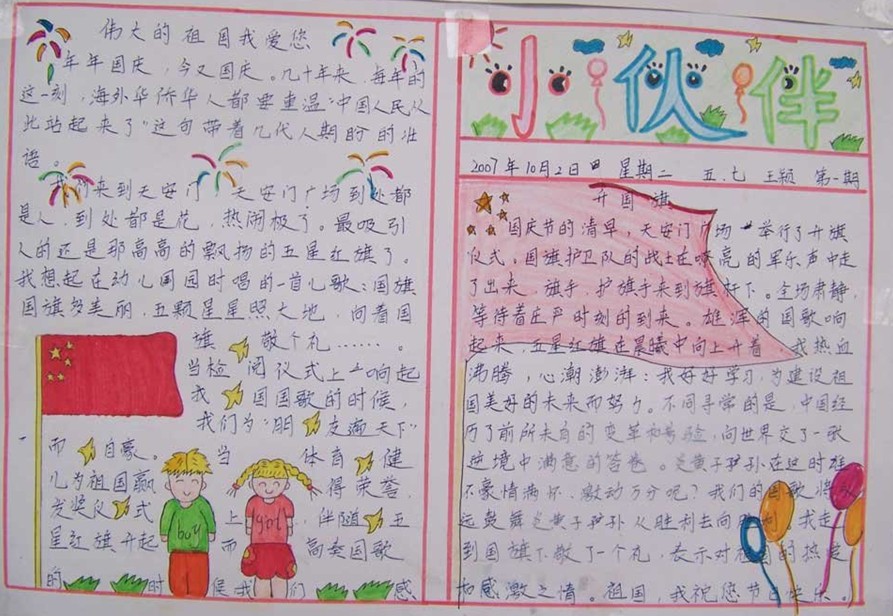 伟大的祖国我爱您
年年国庆，今又国庆。几十年来，每年的
这一刻，海外华侨华人都要重温"中国人民从
此站起来了"这句带着几代人期盼的准
语。
我们来到天安门，天安门广场到处都
是人，到处都是花，热闹极了。最吸引
人的还是那高高的飘扬的五星红旗了。
我想起在幼儿园园时唱的一首儿歌：国旗
国旗多美丽，五颗星星照大地，向着国
旗敬个礼……。
当检阅仪式上响起
我国国歌的时候，
我们为"朋友遍天下"
而自豪。当体育健
儿为祖国赢得荣誉，
发奖仪式上，伴随五
星红旗升起而高奏国歌
的时候我们感
小伙伴
2007年10月2日 星期二 五.七 王颖 第一期
升国旗
国庆节的清早，天安门广场举行了升旗
仪式。国旗护卫队的战士在嘹亮的军乐声中走
了出来，旗手、护旗手来到旗杆下。全场肃静，
等待着庄严时刻的到来。雄浑的国歌响
起来，五星红旗在晨曦中向上升着，我热血
沸腾，心潮澎湃：我好好学习，为建设祖
国美好的未来而努力。不同寻常的是，中国经
历了前所未有的变革和考验，向世界交了一张
逆境中满意的答卷。炎黄子孙在这时谁
不豪情满怀，激动万分呢？我们的国歌将永
远鼓舞炎黄子孙从胜利去向胜利，我走
到国旗下敬了一个礼，表示对祖国的热爱
和感激之情。祖国，我祝您节日快乐。
boy
girl